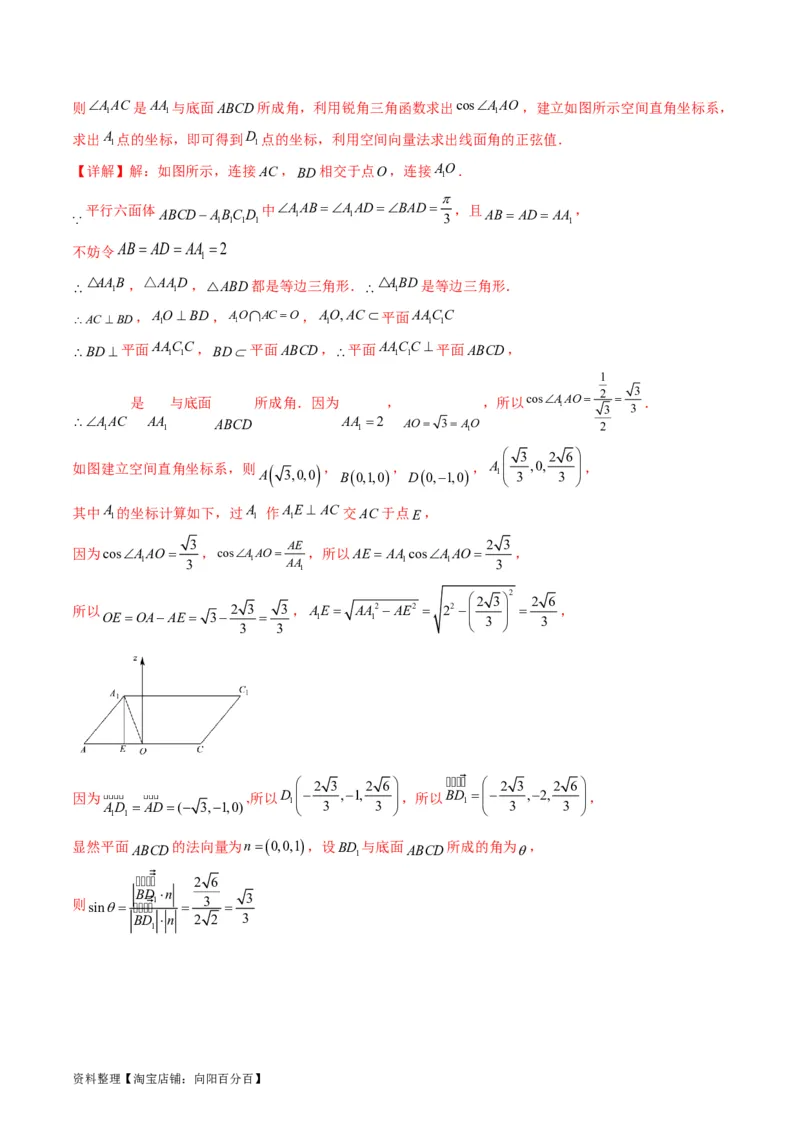 则∠A₁AC 是 AA₁ 与底面 ABCD 所成角，利用锐角三角函数求出 cos∠A₁AO，建立如图所示空间直角坐标系，
求出 A₁ 点的坐标，即可得到 D₁ 点的坐标，利用空间向量法求出线面角的正弦值．
【详解】解：如图所示，连接 AC，BD 相交于点 O，连接 A₁O．
∵ 平行六面体 ABCD−A₁B₁C₁D₁ 中∠A₁AB=∠A₁AD=∠BAD=π/3，且 AB=AD=AA₁，
不妨令 AB=AD=AA₁=2
∴ △AA₁B，△AA₁D，△ABD 都是等边三角形．∴ △A₁BD 是等边三角形．
∴AC⊥BD，A₁O⊥BD，A₁O⋂AC=O，A₁O,AC⊂平面 AA₁C₁C
∴BD⊥平面 AA₁C₁C，BD⊂平面 ABCD，∴平面 AA₁C₁C⊥平面 ABCD，
∴∠A₁AC 是 AA₁ 与底面 ABCD 所成角．因为 AA₁=2，AO=√3=A₁O，所以 cos∠A₁AO=(1/2)/(√3/2)=√3/3．
如图建立空间直角坐标系，则 A(√3,0,0)，B(0,1,0)，D(0,−1,0)，A₁(√3/3,0,2√6/3)，
其中 A₁ 的坐标计算如下，过 A₁ 作 A₁E⊥AC 交 AC 于点 E，
因为 cos∠A₁AO=√3/3，cos∠A₁AO=AE/AA₁，所以 AE=AA₁cos∠A₁AO=2√3/3，
所以 OE=OA−AE=√3−2√3/3=√3/3，A₁E=√(AA₁²−AE²)=√(2²−(2√3/3)²)=2√6/3，
z
A₁ C₁
A E O C
因为 A₁D₁=AD=(−√3,−1,0),所以 D₁(−2√3/3,−1,2√6/3)，所以 BD₁=(−2√3/3,−2,2√6/3)，
显然平面 ABCD 的法向量为 n=(0,0,1)，设 BD₁ 与底面 ABCD 所成的角为 θ，
则 sinθ=|BD₁·n|/(|BD₁|·|n|)=(2√6/3)/(2√2)=√3/3
资料整理【淘宝店铺：向阳百分百】